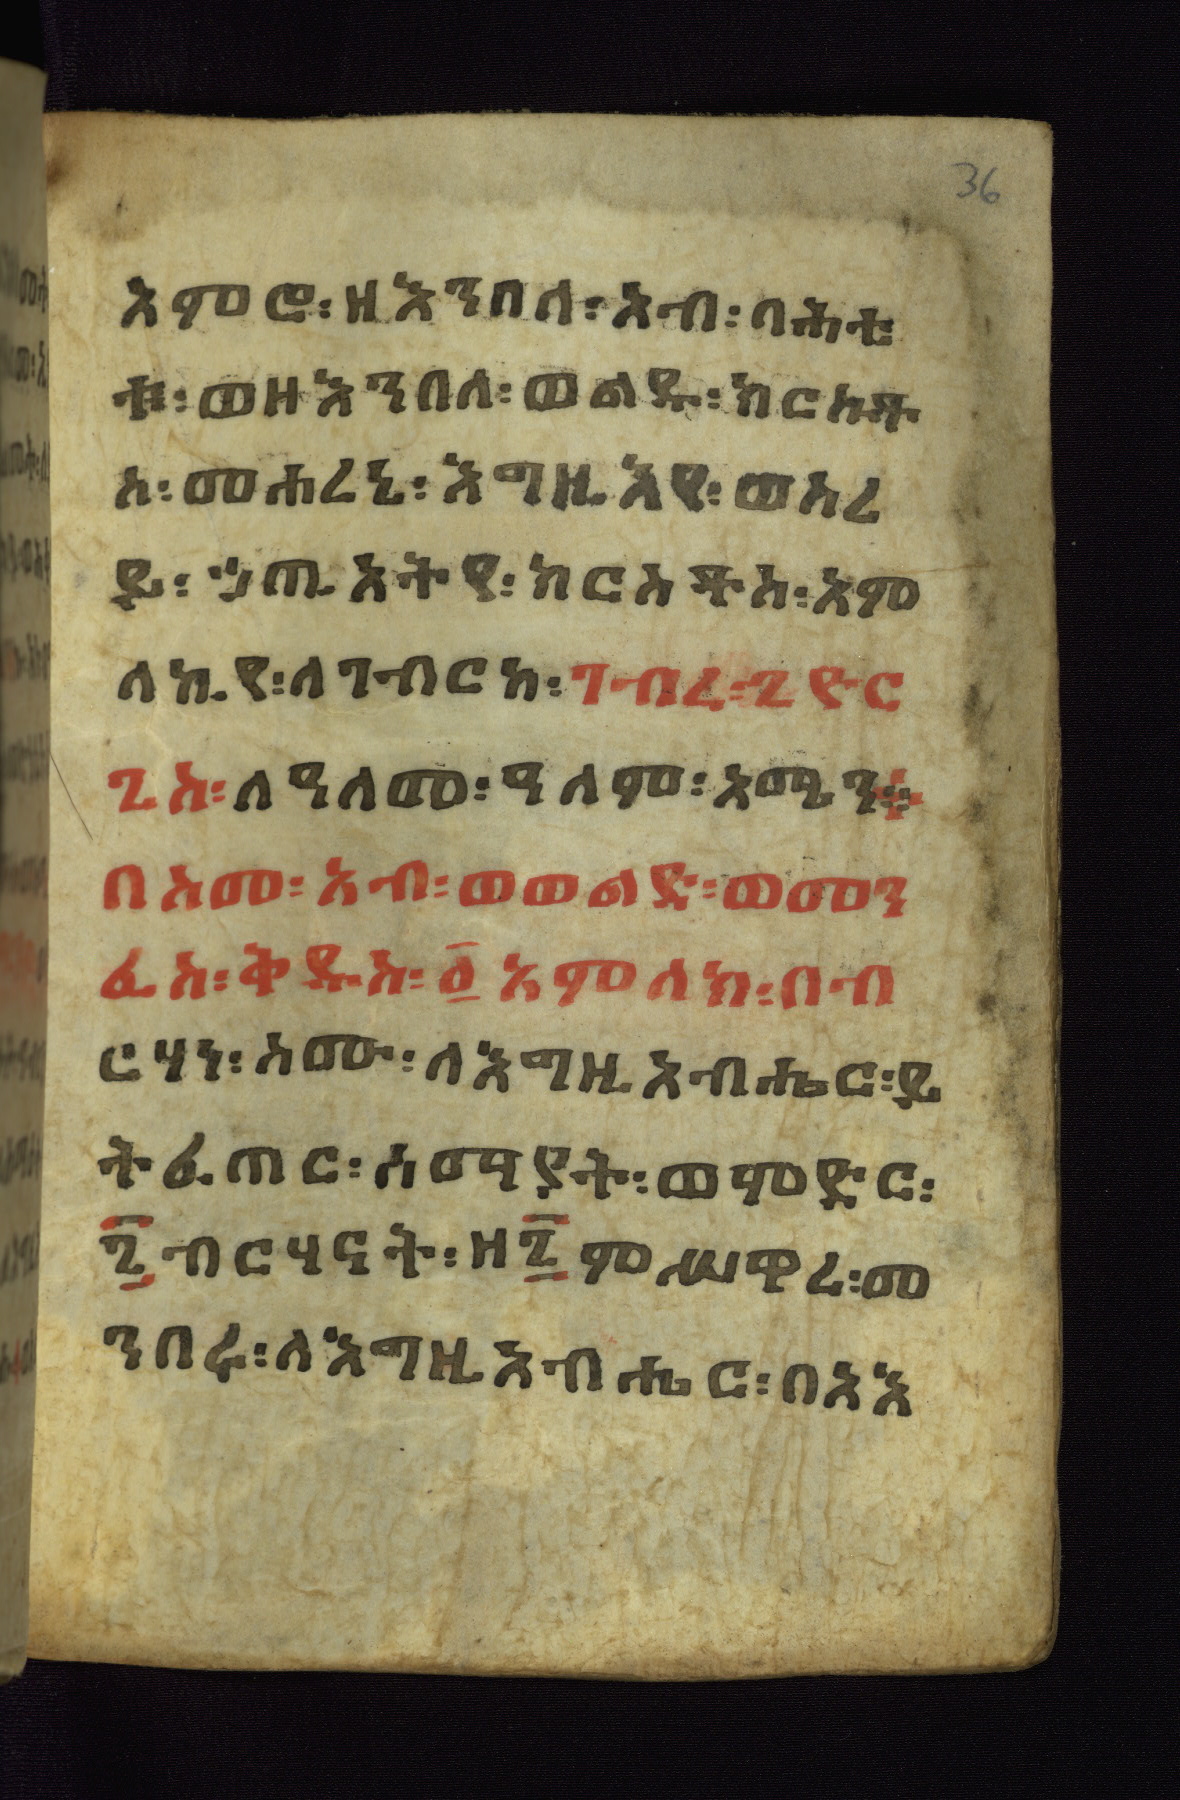 36
እምሮ፡ዘእንበለ፡አብ፡ባሕቲ
ቱ፡ወዘእንበለ፡ወልዱ፡ክርስቶ
ስ፡መሐረኒ፡እግዚእየ፡ወስረ
ይ፡ኃጢአትየ፡ክርስቶስ፡አም
ላኪየ፡ለገብርከ፡ገብረ፡ጊዮር
ጊስ፡ለዓለመ፡ዓለም፡አሜን።
በስመ፡አብ፡ወወልድ፡ወመን
ፈስ፡ቅዱስ፡፩አምላክ፡በብ
ርሃነ፡ስሙ፡ለእግዚአብሔር፡ይ
ትፈጠር፡ሰማያት፡ወምድር፡
፯ብርሃናት፡ዘ፯ምሥዋረ፡መ
ንበሩ፡ለእግዚአብሔር፡በአእ